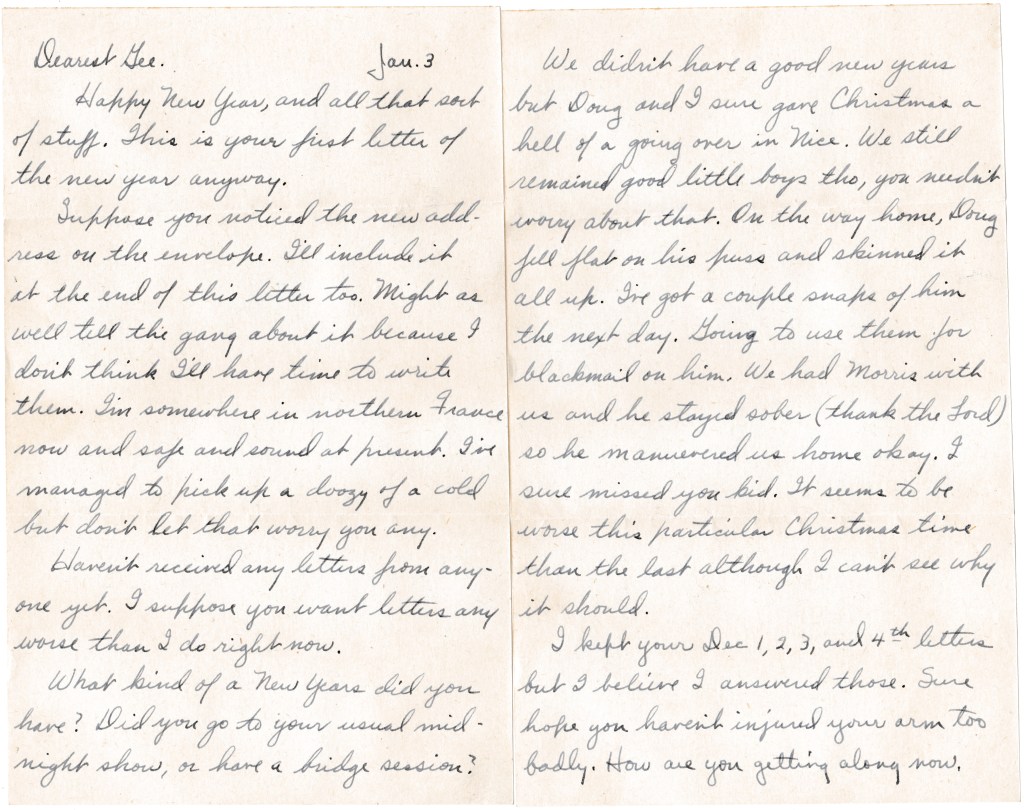 Dearest Gee. Jan. 3
Happy New Year, and all that sort
of stuff. This is your first letter of
the new year anyway.
Suppose you noticed the new add-
ress on the envelope. I'll include it
at the end of this letter too. Might as
well tell the gang about it because I
don't think I'll have time to write
them. I'm somewhere in northern France
now and safe and sound at present. I've
managed to pick up a doozy of a cold
but don't let that worry you any.
Haven't received any letters from any-
one yet. I suppose you want letters any
worse than I do right now.
What kind of a New Years did you
have? Did you go to your usual mid-
night show, or have a bridge session?
We didn't have a good new years
but Doug and I sure gave Christmas a
hell of a going over in Nice. We still
remained good little boys tho, you needn't
worry about that. On the way home, Doug
fell flat on his puss and skinned it
all up. I've got a couple snaps of him
the next day. Going to use them for
blackmail on him. We had Morris with
us and he stayed sober (thank the Lord)
so he manuevered us home okay. I
sure missed you kid. It seems to be
worse this particular Christmas time
than the last although I can't see why
it should.
I kept your Dec 1, 2, 3, and 4th letters
but I believe I answered those. Sure
hope you haven't injured your arm too
badly. How are you getting along now.